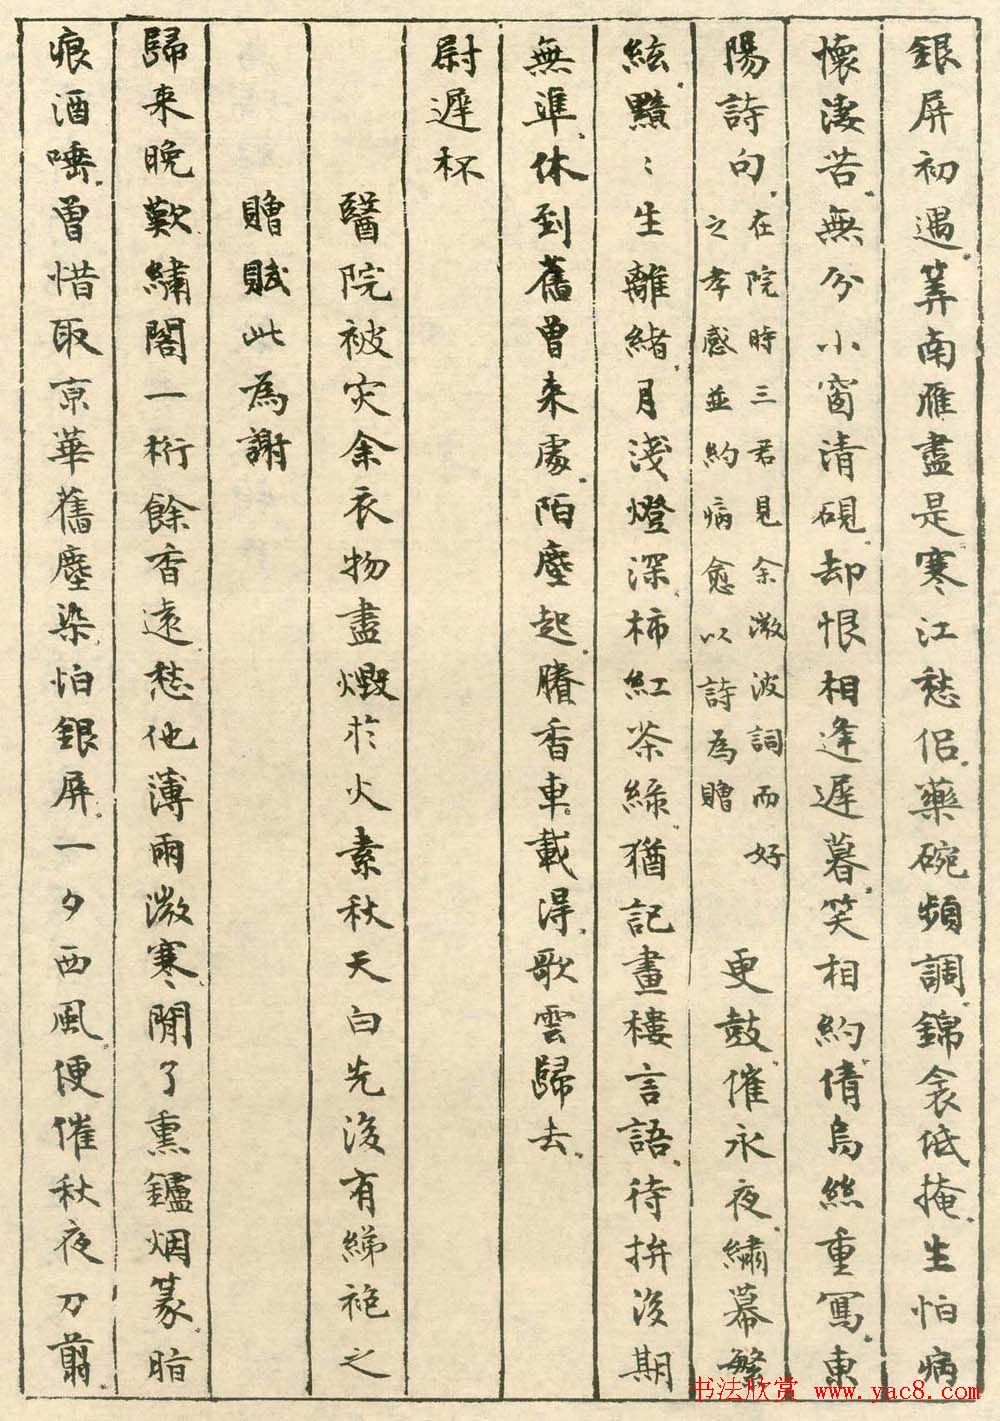 銀屏初遇。算南雁盡是寒江愁侶。藥碗頻調。錦衾低掩。生怕病
懷淒苦。無分小窗清硯。却恨相逢遲暮。笑相約。倩烏絲重寫。東
陽詩句。在院時三君見余微波詞而好
之孝感並約病愈以詩為贈
更鼓。催永夜。繡幕繁
絃。黯〻生離緒。月淺燈深。柿紅茶綠。猶記畫樓言語。待拚後期
無準。休到舊曾来處。陌塵起。賸香車載得。歌雲歸去。
尉遲杯
醫院被灾余衣物盡燬於火素秋天白先後有綈袍之
贈賦此為謝
歸来晚。歎繡閣一桁餘香遠。愁他薄雨微寒。閒了熏鑪烟篆。暗
痕酒唾。曾惜取京華舊塵染。怕銀屏。一夕西風。便催秋夜刀翦。
书法欣赏 www.yac8.com